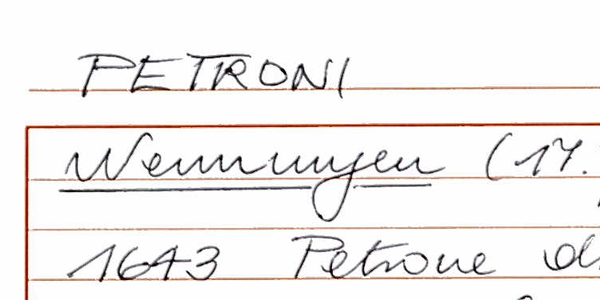 PETRONI
Wemmingen (17.
1643 Petrone